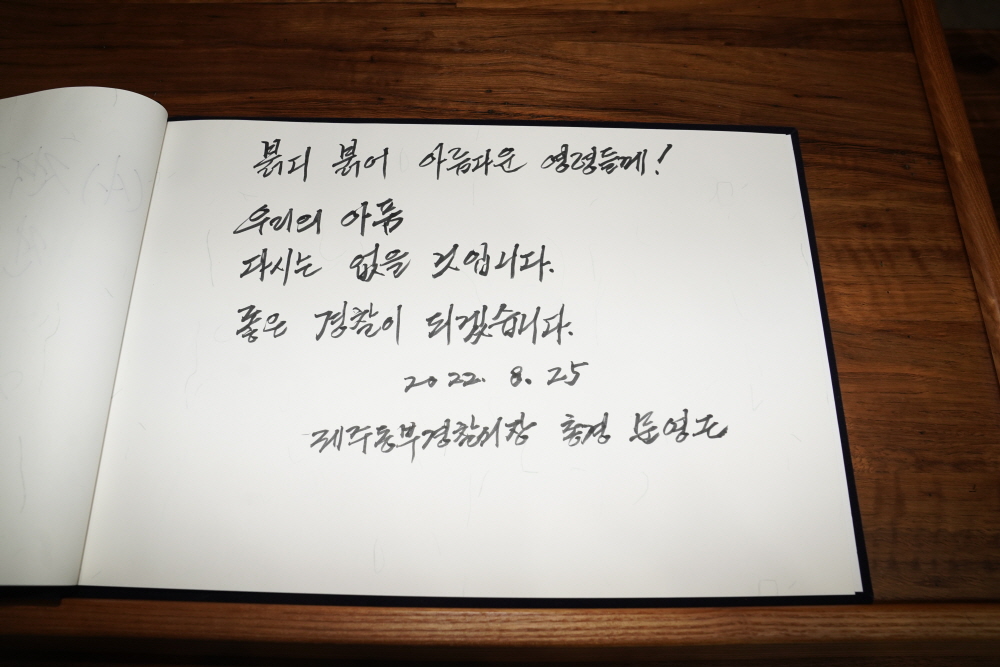 붉디 붉어 아름다운 영령들께!
우리의 아픔
다시는 없을 것입니다.
좋은 경찰이 되겠습니다.
2022. 8. 25
제주동부경찰서장 총경 문영근